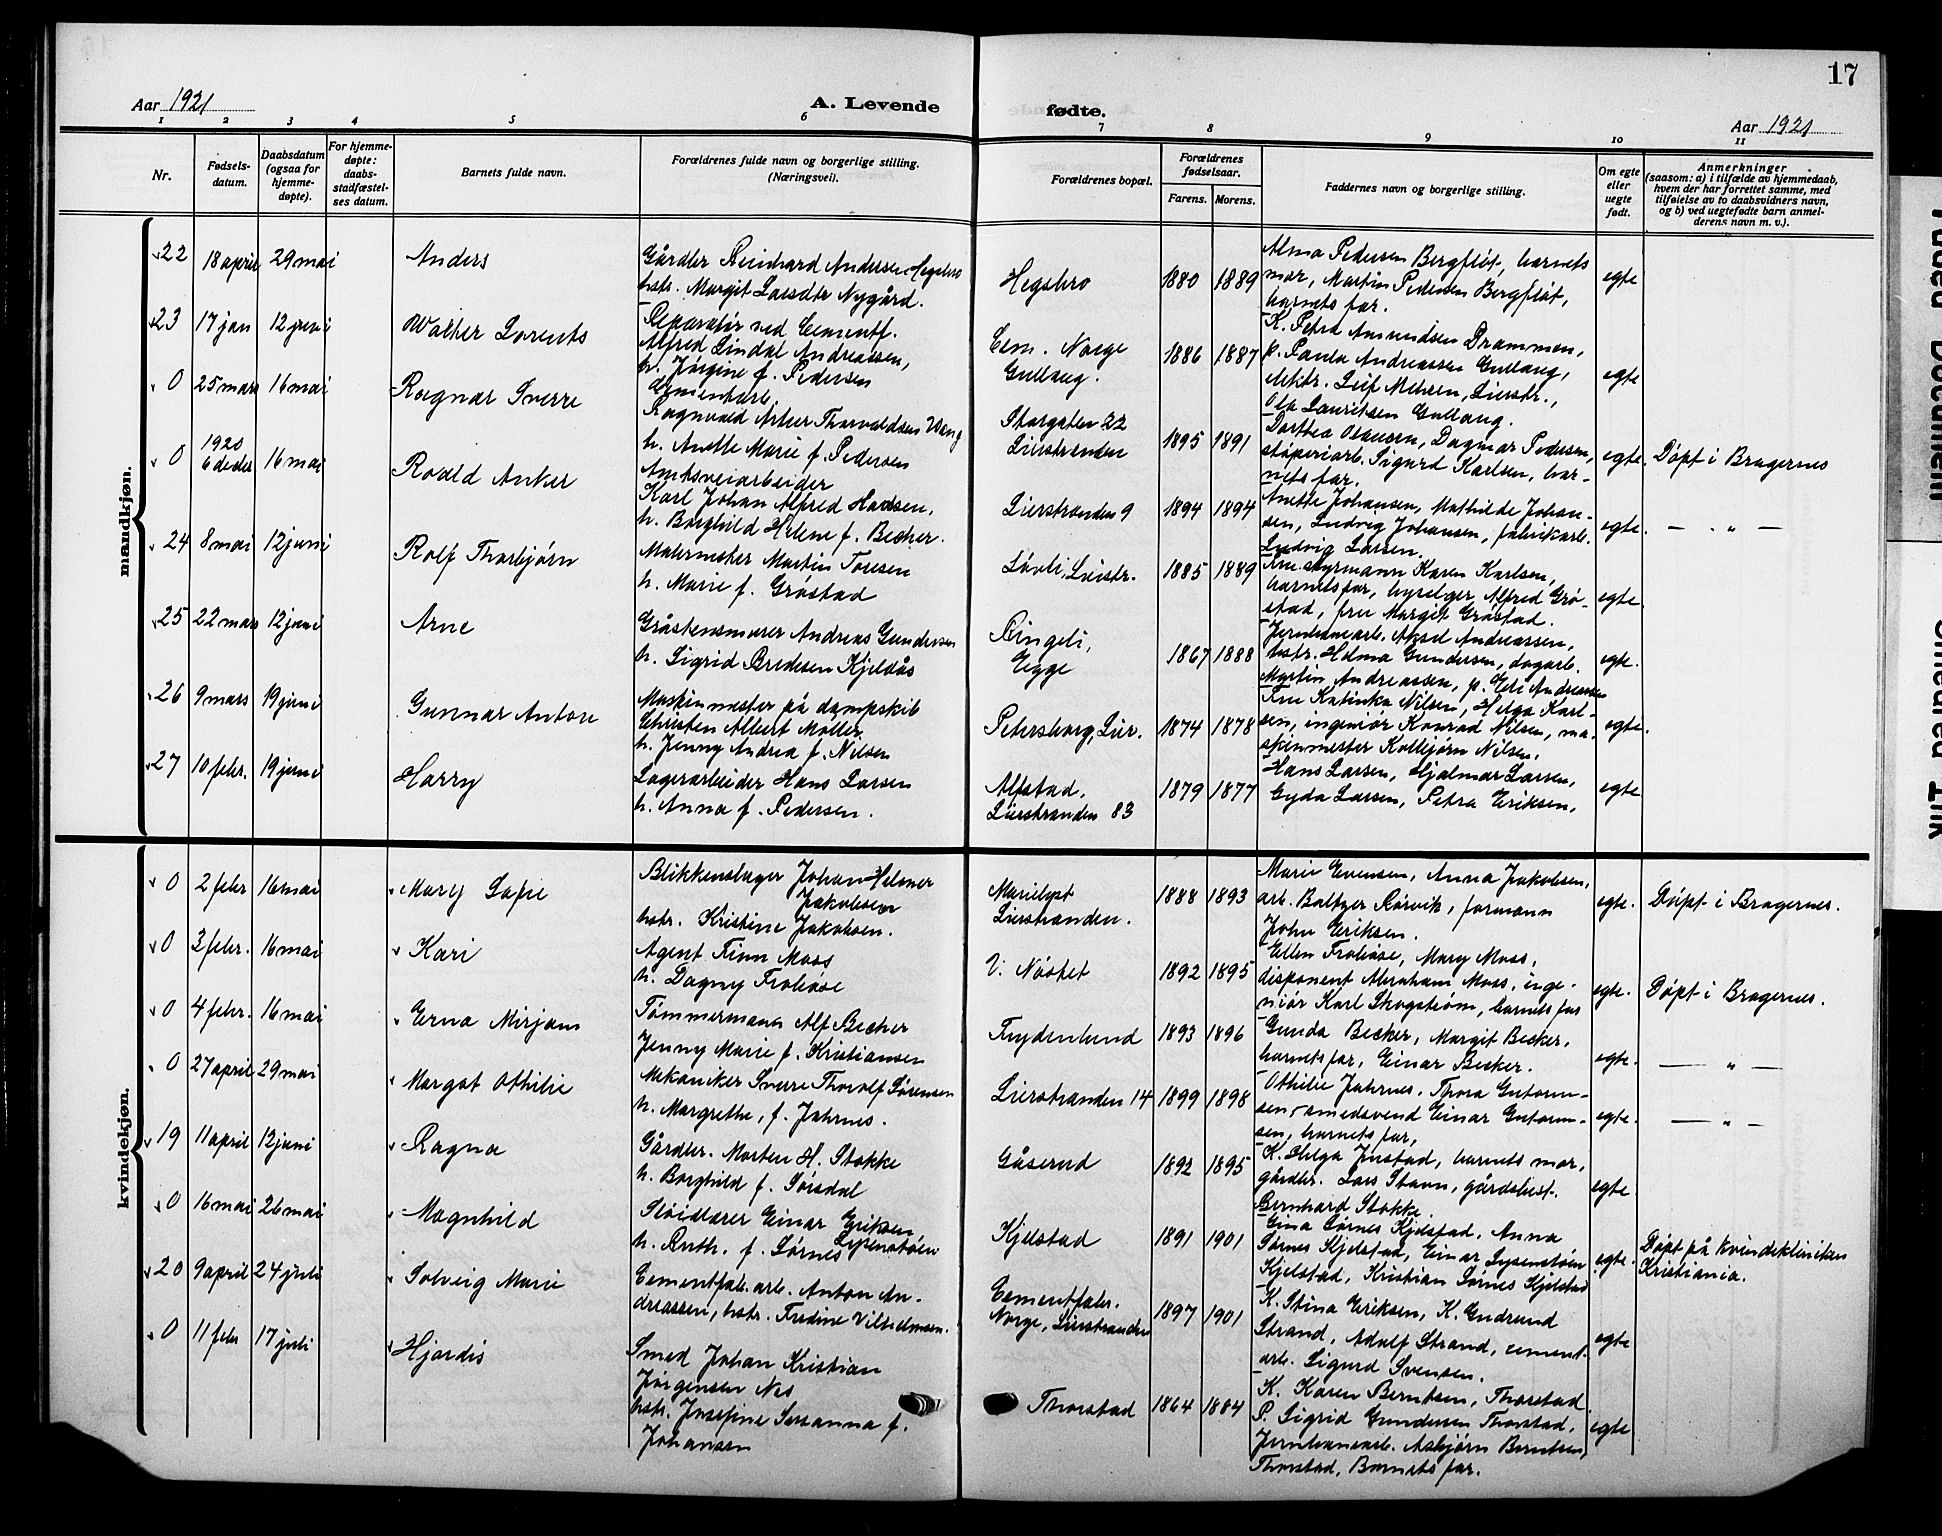 17
Aar 1921
A. Levende fødte.
Aar 1921
1 2 3 4 5 6 7 8 9 10 11
Nr.
Fødsels-
datum.
Daabsdatum
(ogsaa for
hjemme-
døpte).
For hjemme-
døpte:
daabs-
stadfæstel-
ses datum.
Barnets fulde navn.
Forældrenes fulde navn og borgerlige stilling.
(Næringsvei).
Forældrenes bopæl.
Forældrenes
fødselsaar.
Farens. Morens.
Faddernes navn og borgerlige stilling.
Om egte
eller
uegte
født.
Anmerkninger
(saasom: a) i tilfælde av hjemmedaab,
hvem der har forrettet samme, med
tilføielse av to daabsvidners navn,
og b) ved uegtefødte barn anmel-
derens navn m. v.).
mandkjøn.
22 18 april 29 mai Anders
Gårdbr. Reinhard Andersen Hegsbro
hstr. Margit Larsdtr Nygård.
Hegsbro 1880 1889
Alma Pedersen Bergfløt, barnets
mor, Martin Pedersen Bergfløt,
barnets far.
egte
23 17 jan 12 juni Walther Lorents
Reparatør ved Cementf.
Alfred Lindal Andreassen,
h. Jørgine f. Pedersen
Cem. Norge
Gullaug. 1886 1887
K. Petra Amundsen Drammen,
p. Paula Andreassen Gullaug,
elektr. Leif Nilsen, Lierstr.,
Ole Lauritsen Gullaug.
egte
0 25 mars 16 mai Ragnar Sverre
Cementarb.
Ragnvald Arthur Thorvaldsen Wang
h. Anette Marie f. Pedersen
Storgaten 22
Lierstranden 1895 1891
Dorthea Olausen, Dagmar Pedersen,
støperiarb. Sigurd Karlsen, bar-
nets far.
egte. Døpt i Bragernes
0 1920
6 decbr 16 mai Roald Anker
Amtsveiarbeider
Karl Johan Alfred Hansen,
h. Borghild Helene f. Becher.
Lierstranden 9 1894 1894
Anette Johansen, Mathilde Johan-
sen, Ludvig Johansen, fabrikarb.
Ludvig Larsen.
egte. — . " —
24 8 mai 12 juni Rolf Thorbjørn
Malermester Martin Toresen
h. Marie f. Grøstad
Løvli, Lierstr. 1885 1889
Fru styrmann Karen Karlsen,
barnets far, Alfred Grø-
stad, fru Margit Grøstad.
egte.
25 22 mars 12 juni Arne
Gråstensmurer Andreas Gundersen
h. Sigrid Bredesen Kjeldås
Ringeli,
Egge 1867 1888
Jernbanearb. Aksel Andreassen,
hstr. Helma Gundersen, dagarb.
Martin Andreassen, p. Eli Andreassen
egte.
26 9 mars 19 juni Gunnar Anton
Maskinmester på dampskib
Christen Albert Møller,
h. Jenny Andrea f. Nilsen
Petersborg, Lier. 1874 1878
Fru Katinka Nilsen, Helga Karl-
sen, ingeniør Konrad Nilsen, ma-
skinmester Kolbjørn Nilsen.
egte.
27 10 febr. 19 juni Harry
Lagerarbeider Hans Larsen
h. Anna f. Pedersen.
Alfstad,
Lierstranden 83 1879 1877
Hans Larsen, Hjalmar Larsen,
Gyda Larsen, Petra Eriksen,
egte
kvindekjøn.
0 2 febr 16 mai Mary Sofie
Blikkenslager Johan Helmer
Jakobsen
hstr. Kristine Jakobsen.
Marielyst
Lierstranden. 1888 1893
Marie Evensen, Anna Jakobsen,
arb. Baltzer Rørvik, formann
John Eriksen.
egte. Døpt i Bragernes.
0 3 febr. 16 mai Kari
Agent Finn Moss
h. Dagny Frobøse
V. Nøstet 1892 1895
Ellen Frobøse, Mary Moss,
disponent Abraham Moss, inge-
niør Karl Skogstrøm, barnets far
egte. Døpt i Bragernes.
0 4 febr. 16 mai Erna Mirjam
Tømmermann Alf Becher
Jenny Marie f. Kristiansen
Frydenlund 1893 1896
Gunda Becker, Margit Becker,
barnets far, Einar Becker.
egte. — " —
0 27 april 29 mai Margot Othilie
Mekaniker Sverre Thorolf Sørensen
h. Margrethe, f. Jahrnes.
Lierstranden 14 1899 1898
Othilie Jahrnes, Thora Gutorm-
sen, smedsvend Einar Gutorm-
sen, barnets far,
egte. — " —
19 11 april 12 juni Ragna
Gårdbr. Morten H. Stokke
h. Borghild f. Sørsdal
Gåserud 1892 1895
K. Helga Justad, barnets mor,
gårdbr. Lars Stavn, gårdsbest.
Bernhard Stokke.
egte.
0 16 mai 26 mai Magnhild
Sløidlærer Einar Eriksen
Lysenstøen
h. Ruth. f. Sørnes
Kjelstad 1891 1901
Gina Sørnes Kjelstad, Anna
Sørnes Kjelstad, Einar Lysenstøen
Kjelstad, Kristian Sørnes Kjelstad
egte. Døpt på Kvindeklinikken
Kristiania.
20 9 april 24 juli Solveig Marie
Cementfabr.arb. Anton An-
dreassen, hstr. Fredine Vilhelmsen.
Cementfabr.
Norge, Lierstranden 1897 1901
K. Stina Eriksen, K. Gudrund
Strand, Adolf Strand, cement-
arb. Sigurd Svensen.
egte
0 11 febr 17 juli Hjørdis
Smed Johan Kristian
Jørgensen Nes
hstr. Josefine Susanna f.
Johansen
Thorstad 1864 1884
K. Karen Berntsen, Thorstad
P. Sigrid Gundersen Thorstad,
Jernbanearb. Asbjørn Berntsen,
Thorstad, Barnets far.
egte